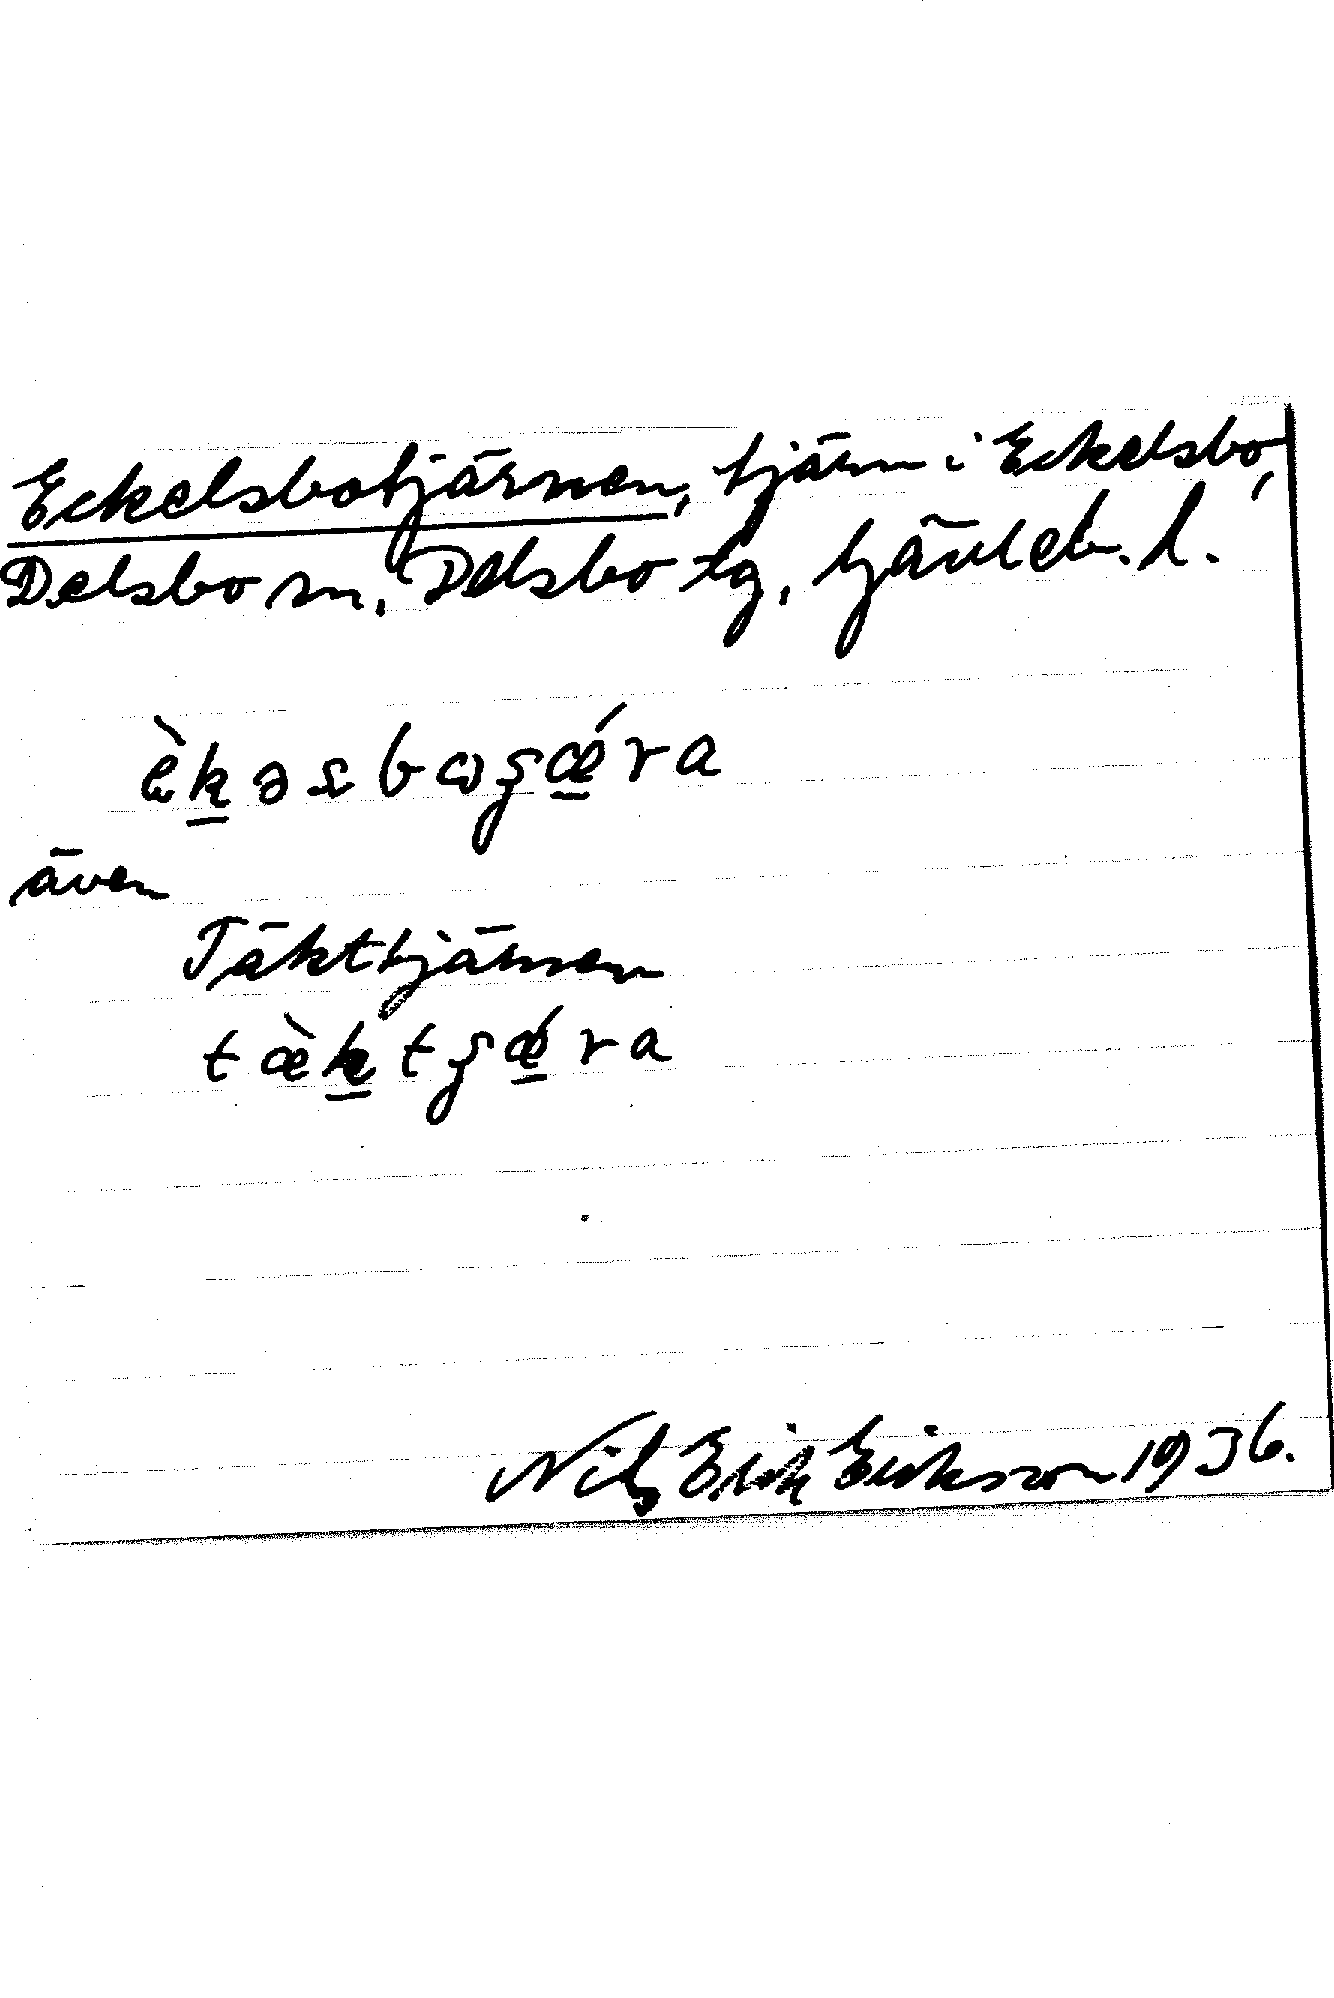 Eckelsbotjärnen, tjärn i Eckelsbo,
Delsbo sn, Delsbo tg, Gävleb. l.
ὲk̲əsbωʂǽ̲ra
även
Täkttjärnen
tæ̀k̲tʂǽ̲ra
Nils Erik Eriksson 1936.